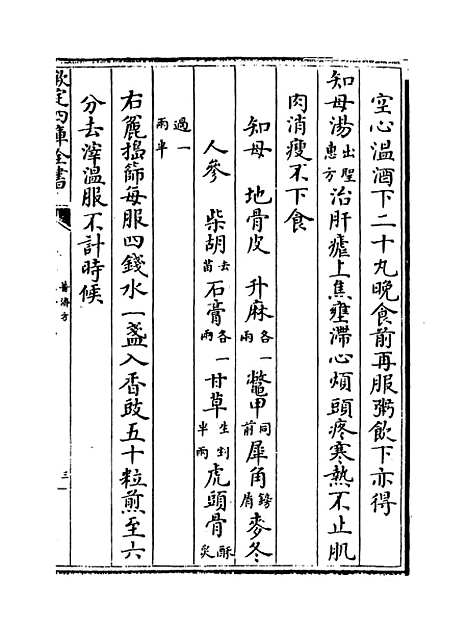 空心温酒下二十丸晚食前再服粥飲下亦得
知母湯出聖惠方治肝瘧上焦壅滯心煩頭疼寒熱不止肌
肉消瘦不下食
知母 地骨皮 升麻各一兩 鼈甲同前 犀角鎊屑 麥冬
人參 柴胡去苗 石膏各一兩 甘草生剉半兩 虎頭骨酥炙
過一兩半
右麄搗篩每服四錢水一盞入香豉五十粒煎至六
分去滓溫服不計時候
欽定四庫全書
普濟方